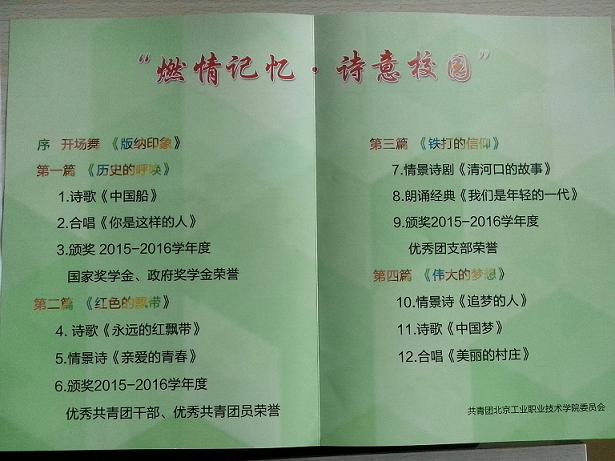 “燃情记忆·诗意校园”
序 开场舞 《版纳印象》
第一篇 《历史的呼唤》
1.诗歌《中国船》
2.合唱《你是这样的人》
3.颁奖 2015-2016学年度
国家奖学金、政府奖学金荣誉
第二篇 《红色的飘带》
4. 诗歌《永远的红飘带》
5.情景诗《亲爱的青春》
6.颁奖2015-2016学年度
优秀共青团干部、优秀共青团员荣誉
第三篇 《铁打的信仰》
7.情景诗剧《清河口的故事》
8.朗诵经典《我们是年轻的一代》
9.颁奖2015-2016学年度
优秀团支部荣誉
第四篇 《伟大的梦想》
10.情景诗《追梦的人》
11.诗歌《中国梦》
12.合唱《美丽的村庄》
共青团北京工业职业技术学院委员会